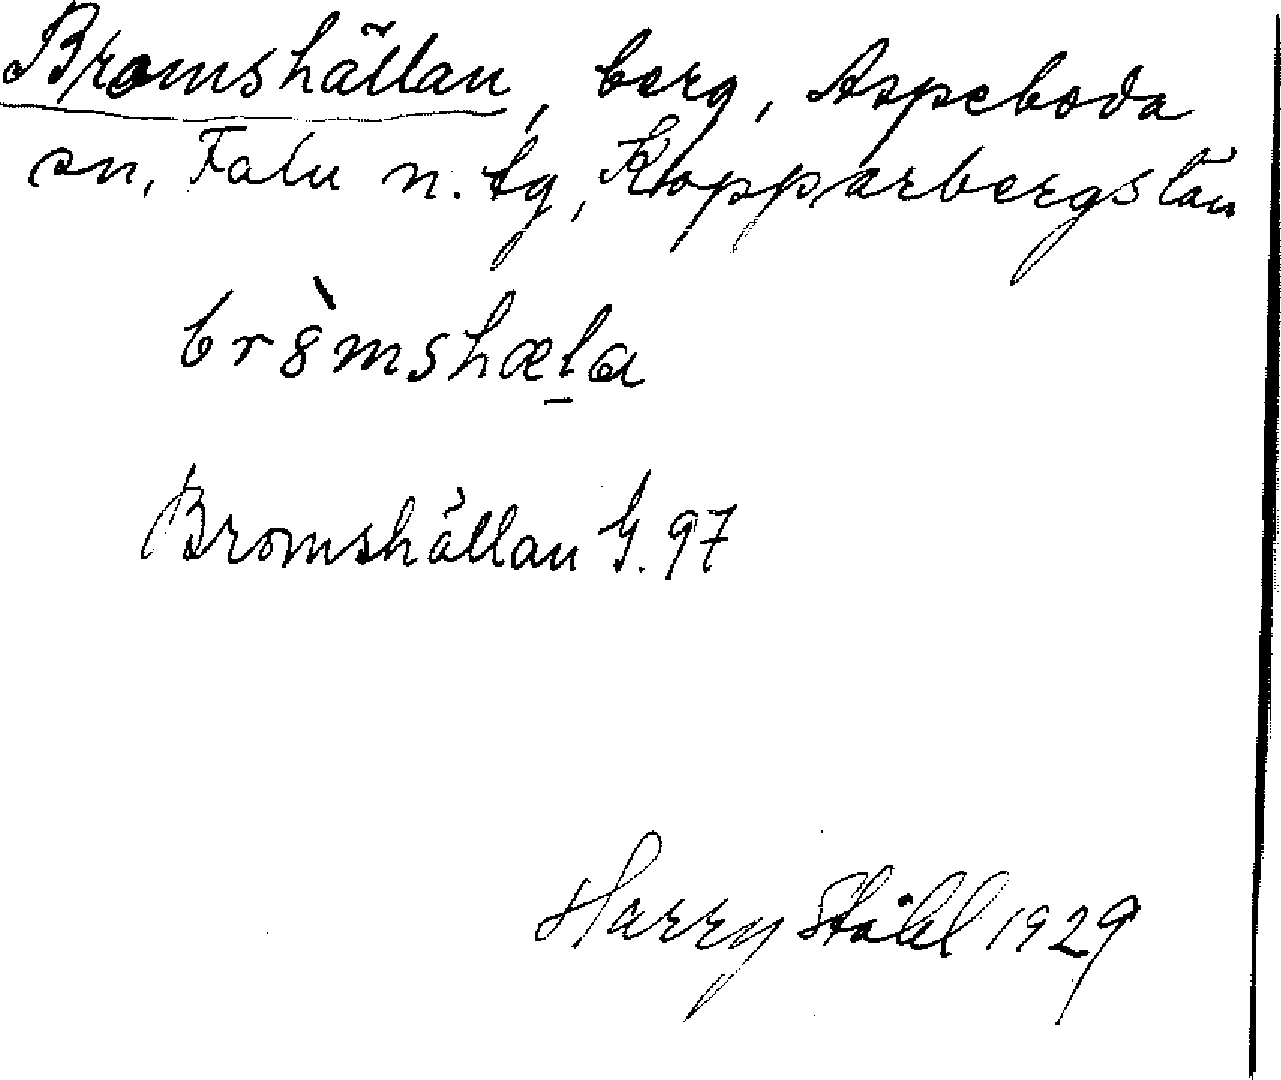 Bromshällan, berg, Aspeboda
sn, Falu n. tg, Kopparbergs län
br8̀mshæla
Bromshällan G. 97
Harry Ståhl 1929